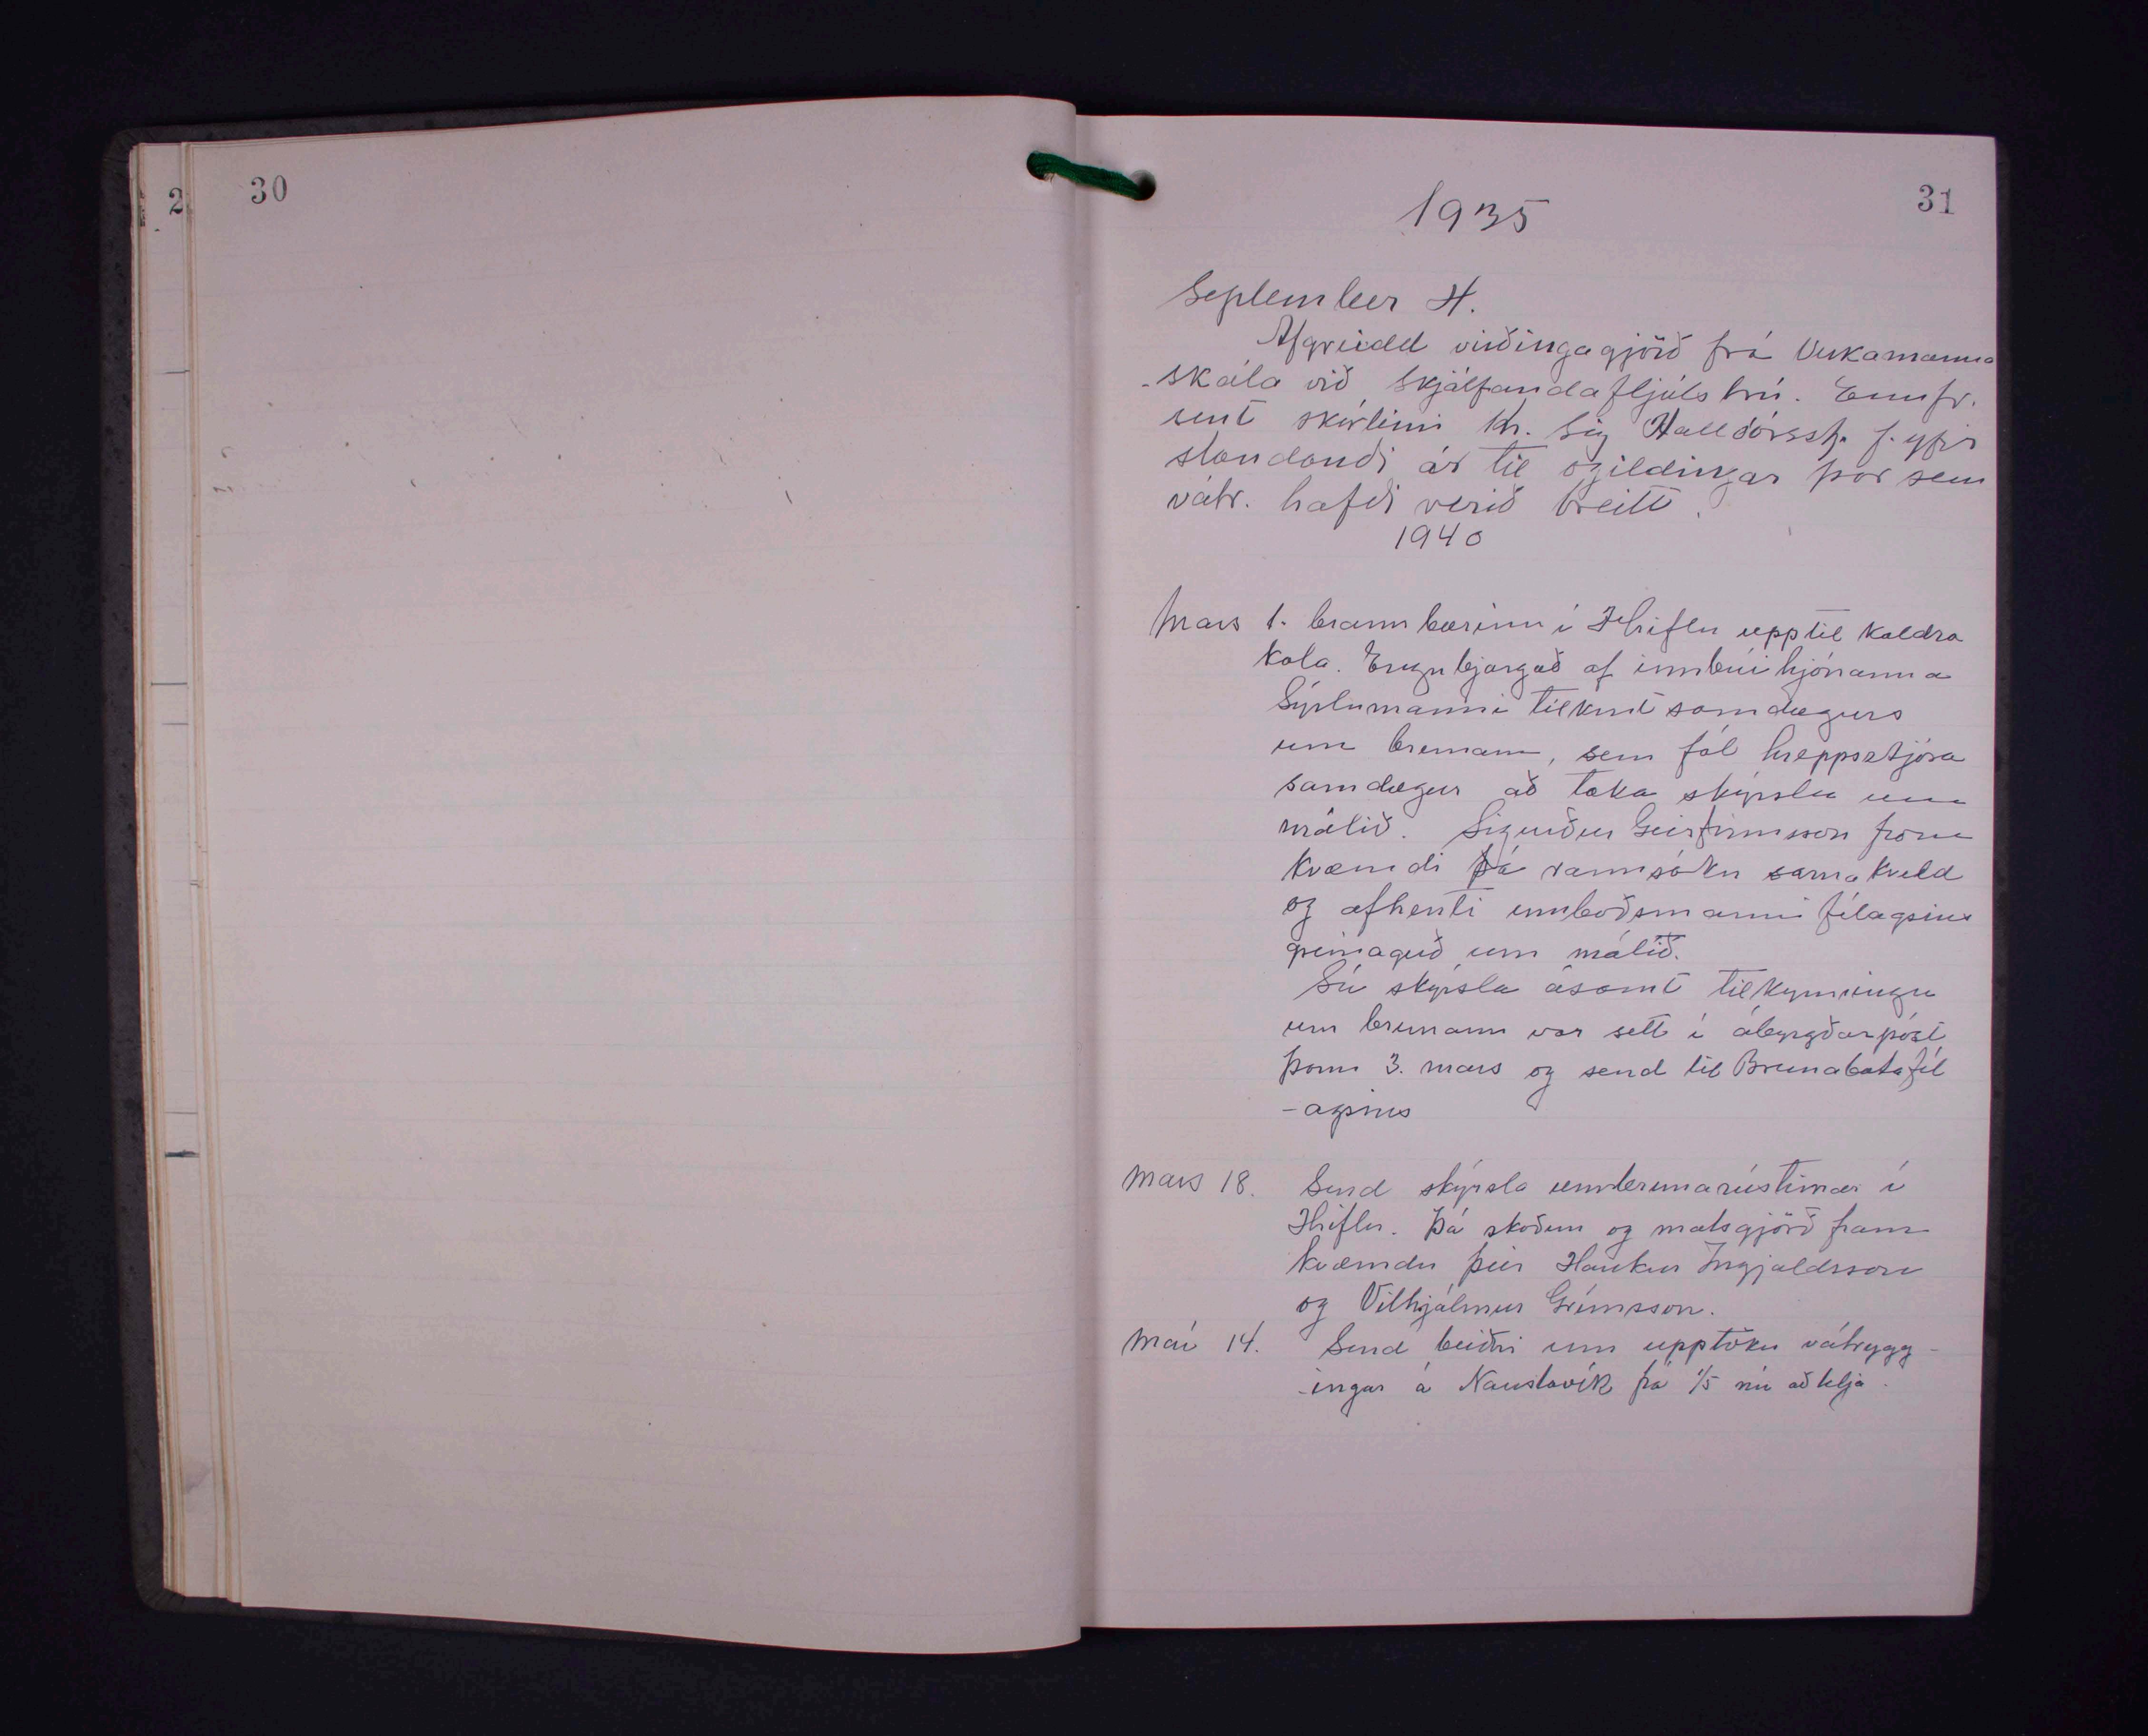 2
30
31
1935
September 4.
Afgreidd virðingagjörð frá Verkamanna
-skála við Skjálfandafljótsbrú. Ennfr.
sent skírteini Kr. Sig Halldórss. f. yfir
standandi ár til ógildingar þar sem
vátr. hafði verið breitt.
1940
Mars 1. brann bærinn í Hriflu upp til kaldra
kola. Engu bjargað af innbúi hjónanna
Sýslumanni tilkynt samdægurs
um brunann, sem fól hreppstjóra
samdægur að taka skýrslu um
málið. Sigurður Geirfinnsson fram
kvæmdi þá rannsókn sama kveld
og afhenti umboðsmanni félagsins
greinagerð um málið.
Sú skýrsla ásamt tilkynningu
um brunann var sett í ábyrgðarpóst
þann 3. mars og send til Brunabótafél
-agsins
Mars 18. Send skýrsla um brunarústirnar í
Hriflu. Þá skoðun og matsgjörð fram
kvæmdu þeir Haukur Ingjaldsson
og Vilhjálmur Grímsson.
Maí 14. Send beiðni um upptöku vátrygg-
-ingar á Naustavík frá 1/5 nú að telja.